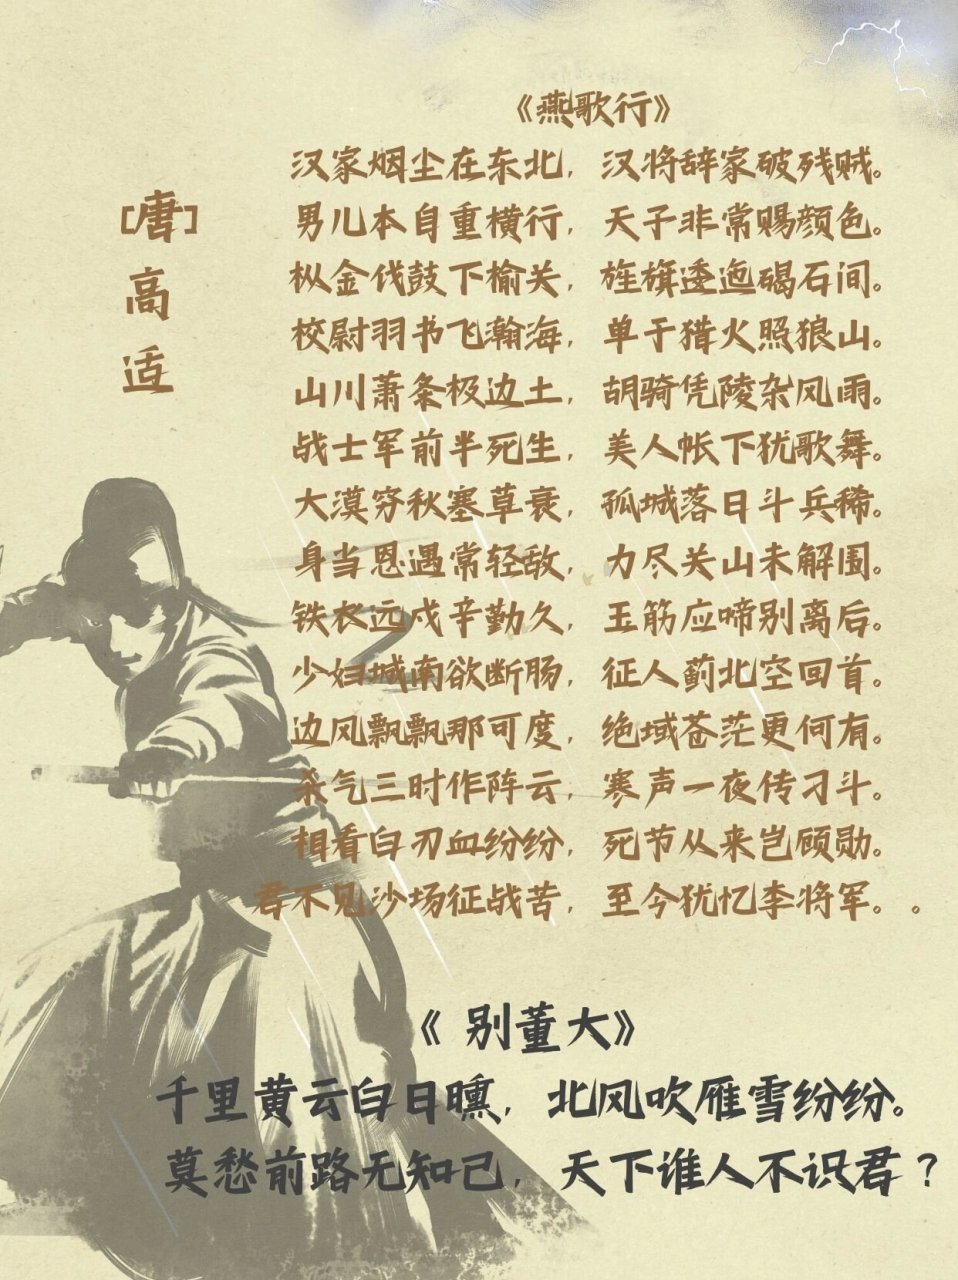 《燕歌行》
[唐]
高
适
汉家烟尘在东北，汉将辞家破残贼。
男儿本自重横行，天子非常赐颜色。
枞金伐鼓下榆关，旌旗逶迤碣石间。
校尉羽书飞瀚海，单于猎火照狼山。
山川萧条极边土，胡骑凭陵杂风雨。
战士军前半死生，美人帐下犹歌舞。
大漠穷秋塞草衰，孤城落日斗兵稀。
身当恩遇常轻敌，力尽关山未解围。
铁衣远戍辛勤久，玉筋应啼别离后。
少妇城南欲断肠，征人蓟北空回首。
边风飘飘那可度，绝域苍茫更何有。
杀气三时作阵云，寒声一夜传刁斗。
相看白刃血纷纷，死节从来岂顾勋。
君不见沙场征战苦，至今犹忆李将军。。
《 别董大》
千里黄云白日曛，北风吹雁雪纷纷。
莫愁前路无知己，天下谁人不识君？